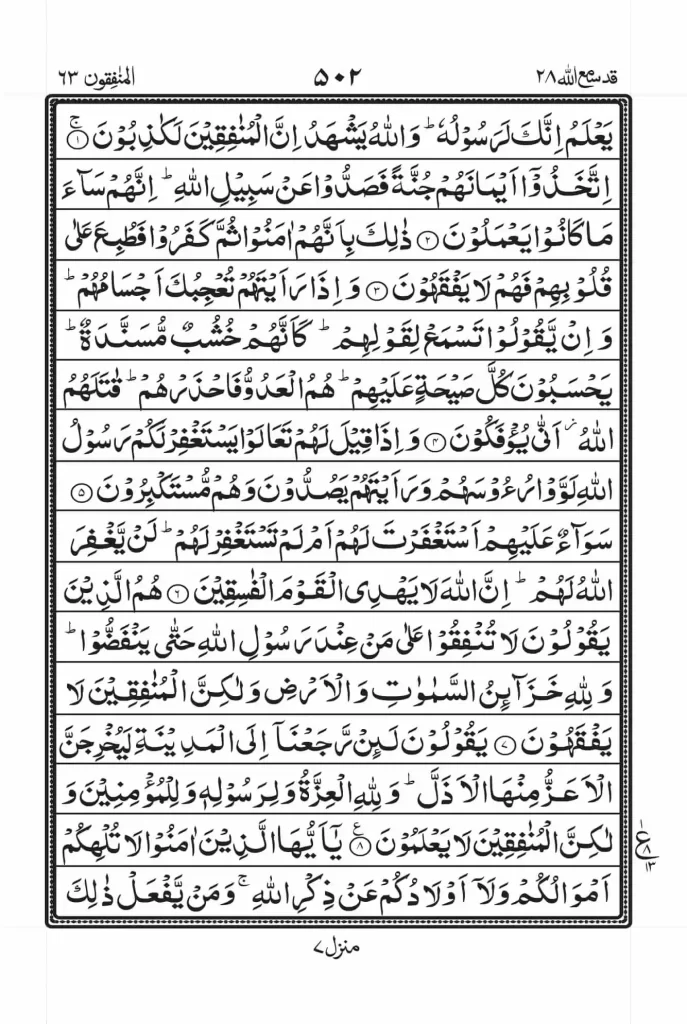 قد سمع الله ٢٨ ۵۰۲ المنٰفقون ٦٣
يَعْلَمُ اِنَّكَ لَرَسُوْلُهٗ ؕ وَاللّٰهُ يَشْهَدُ اِنَّ الْمُنٰفِقِيْنَ لَكٰذِبُوْنَ ۚ ١
اِتَّخَذُوْۤا اَيْمَانَهُمْ جُنَّةً فَصَدُّوْا عَنْ سَبِيْلِ اللّٰهِ ؕ اِنَّهُمْ سَآءَ
مَا كَانُوْا يَعْمَلُوْنَ ٢ ذٰلِكَ بِاَنَّهُمْ اٰمَنُوْا ثُمَّ كَفَرُوْا فَطُبِعَ عَلٰى
قُلُوْبِهِمْ فَهُمْ لَا يَفْقَهُوْنَ ٣ وَاِذَا رَاَيْتَهُمْ تُعْجِبُكَ اَجْسَامُهُمْ ؕ
وَاِنْ يَّقُوْلُوْا تَسْمَعْ لِقَوْلِهِمْ ؕ كَاَنَّهُمْ خُشُبٌ مُّسَنَّدَةٌ ؕ
يَحْسَبُوْنَ كُلَّ صَيْحَةٍ عَلَيْهِمْ ؕ هُمُ الْعَدُوُّ فَاحْذَرْهُمْ ؕ قٰتَلَهُمُ
اللّٰهُ ؗ اَنّٰى يُؤْفَكُوْنَ ٤ وَاِذَا قِيْلَ لَهُمْ تَعَالَوْا يَسْتَغْفِرْ لَكُمْ رَسُوْلُ
اللّٰهِ لَوَّوْا رُءُوْسَهُمْ وَرَاَيْتَهُمْ يَصُدُّوْنَ وَهُمْ مُّسْتَكْبِرُوْنَ ٥
سَوَآءٌ عَلَيْهِمْ اَسْتَغْفَرْتَ لَهُمْ اَمْ لَمْ تَسْتَغْفِرْ لَهُمْ ؕ لَنْ يَّغْفِرَ
اللّٰهُ لَهُمْ ؕ اِنَّ اللّٰهَ لَا يَهْدِى الْقَوْمَ الْفٰسِقِيْنَ ٦ هُمُ الَّذِيْنَ
يَقُوْلُوْنَ لَا تُنْفِقُوْا عَلٰى مَنْ عِنْدَ رَسُوْلِ اللّٰهِ حَتّٰى يَنْفَضُّوْا ؕ
وَلِلّٰهِ خَزَآئِنُ السَّمٰوٰتِ وَالْاَرْضِ وَلٰكِنَّ الْمُنٰفِقِيْنَ لَا
يَفْقَهُوْنَ ٧ يَقُوْلُوْنَ لَئِنْ رَّجَعْنَاۤ اِلَى الْمَدِيْنَةِ لَيُخْرِجَنَّ
الْاَعَزُّ مِنْهَا الْاَذَلَّ ؕ وَلِلّٰهِ الْعِزَّةُ وَلِرَسُوْلِهٖ وَلِلْمُؤْمِنِيْنَ وَ
لٰكِنَّ الْمُنٰفِقِيْنَ لَا يَعْلَمُوْنَ ٨ يٰۤاَيُّهَا الَّذِيْنَ اٰمَنُوْا لَا تُلْهِكُمْ
اَمْوَالُكُمْ وَلَاۤ اَوْلَادُكُمْ عَنْ ذِكْرِ اللّٰهِ ۚ وَمَنْ يَّفْعَلْ ذٰلِكَ
ع ٨ ١٣
منزل ٧